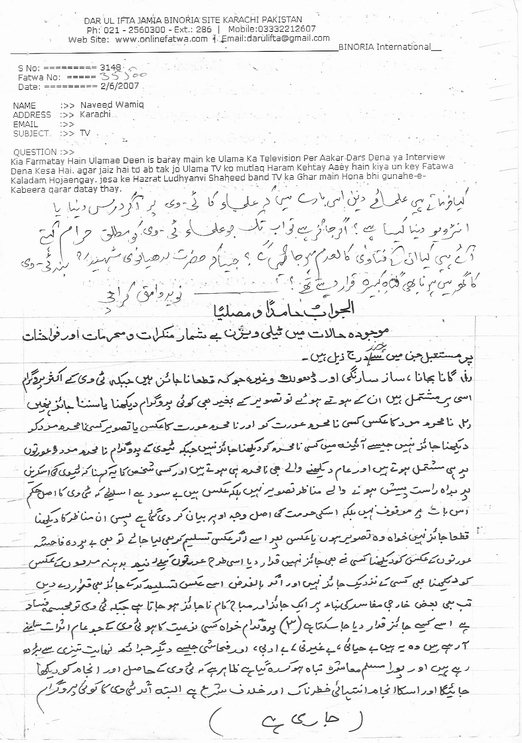 DAR UL IFTA JAMIA BINORIA SITE KARACHI PAKISTAN
Ph: 021 - 2560300 - Ext.: 286 | Mobile:03332212607
Web Site: www.onlinefatwa.com | Email:darulifta@gmail.com
BINORIA International
S No: ========= 3148
Fatwa No: =====
Date: ========= 2/6/2007
NAME :>> Naveed Wamiq
ADDRESS :>> Karachi
EMAIL :>>
SUBJECT :>> TV
QUESTION :>>
Kia Farmatay Hain Ulamae Deen is baray main ke Ulama Ka Television Per Aakar Dars Dena ya Interview
Dena Kesa Hai. agar jaiz hai to ab tak jo Ulama TV ko mutlaq Haram Kehtay Aaey hain kiya un key Fatawa
Kaladam Hojaengay. jesa ke Hazrat Ludhyanvi Shaheed band TV ka Ghar main Hona bhi gunahe-e-
Kabeera qarar datay thay.
کیا فرماتے ہیں علمائے دین اس بارے میں کہ علماء کا ٹی وی پر آکر درس دینا یا
انٹرویو دینا کیسا ہے؟ اگر جائز ہے تو اب تک جو علماء ٹی وی کو مطلق حرام کہتے
آئے ہیں کیا ان کے فتاویٰ کالعدم ہو جائیں گے؟ جیسا کہ حضرت لدھیانوی شہید بند ٹی وی
کا گھر میں ہونا بھی گناہ کبیرہ قرار دیتے تھے؟
نوید وامق کراچی
الجواب حامداً و مصلیا
موجودہ حالات میں ٹیلی ویژن بے شمار منکرات و محرمات اور فواحشات
پر مشتمل جن میں سے درج ذیل ہیں۔
گانا بجانا، ساز سارنگی اور ڈھولک وغیرہ جو کہ قطعاً ناجائز ہیں جبکہ ٹی وی کے اکثر پروگرام
اسی پر مشتمل ہیں ان کے ہوتے ہوئے تو تصویر کے بغیر بھی کوئی پروگرام دیکھنا یا سننا جائز نہیں
نامحرم مرد کا عکس کسی نامحرم عورت کو اور نامحرم عورت کا عکس یا تصویر کسی نامحرم مرد کو
دیکھنا جائز نہیں جیسے آئینہ میں کسی نامحرم کو دیکھنا جائز نہیں جبکہ ٹیوی کے پروگرام نامحرم مرد و عورتوں
پر ہی مشتمل ہوتے ہیں اور عام دیکھنے والے بھی نامحرم ہی ہوتے ہیں اور کسی شخص کا یہ کہنا کہ ٹیوی کی اسکرین
پر براہ راست پیش ہونے والے مناظر تصویر نہیں بلکہ عکس ہیں بے سود ہے اسلئے کہ ٹی وی کا اصل حکم
اس بات پر موقوف نہیں بلکہ اسکی حرمت کی اصل وجہ اوپر بیان کر دی گئی ہے پس ان مناظر کا دیکھنا
قطعاً جائز نہیں خواہ وہ تصویر ہوں یا عکس پھر اسے اگر عکس تسلیم کر بھی لیا جائے تو بھی بے پردہ فاحشہ
عورتوں کے عکس کو دیکھنا کسی نے بھی جائز نہیں قرار دیا اسی طرح عورتوں کیلئے نیم برہنہ مردوں کے عکس
کو دیکھنا بھی کسی کے نزدیک جائز نہیں اور اگر بالفرض اسے عکس تسلیم کر کے جائز بھی قرار دے دیں
تب بھی بعض خارجی مفاسد کی بناء پر ایک جائز اور مباح کام ناجائز ہو جاتا ہے جبکہ ٹی وی تو مجسمہ فساد
ہے اسے کیسے جائز قرار دیا جا سکتا ہے (۳) پروگرام خواہ کسی نوعیت کا ہو ٹی وی کے جو عام اثرات سامنے
آ رہے ہیں وہ یہ ہیں بے حیائی، بے غیرتی، بے ادبی، اور فحاشی جیسے دیگر جرائم نہایت تیزی سے بڑھ
رہے ہیں اور پورا مسلم معاشرہ تباہ ہو کر رہ گیا ہے ظاہر ہے کہ ٹی وی کے حاصل اور انجام کو دیکھا
جائیگا اور اسکا انجام انتہائی خطرناک اور خلاف شرع ہے البتہ اگر ٹی وی کا کوئی پروگرام
( جاری ہے )